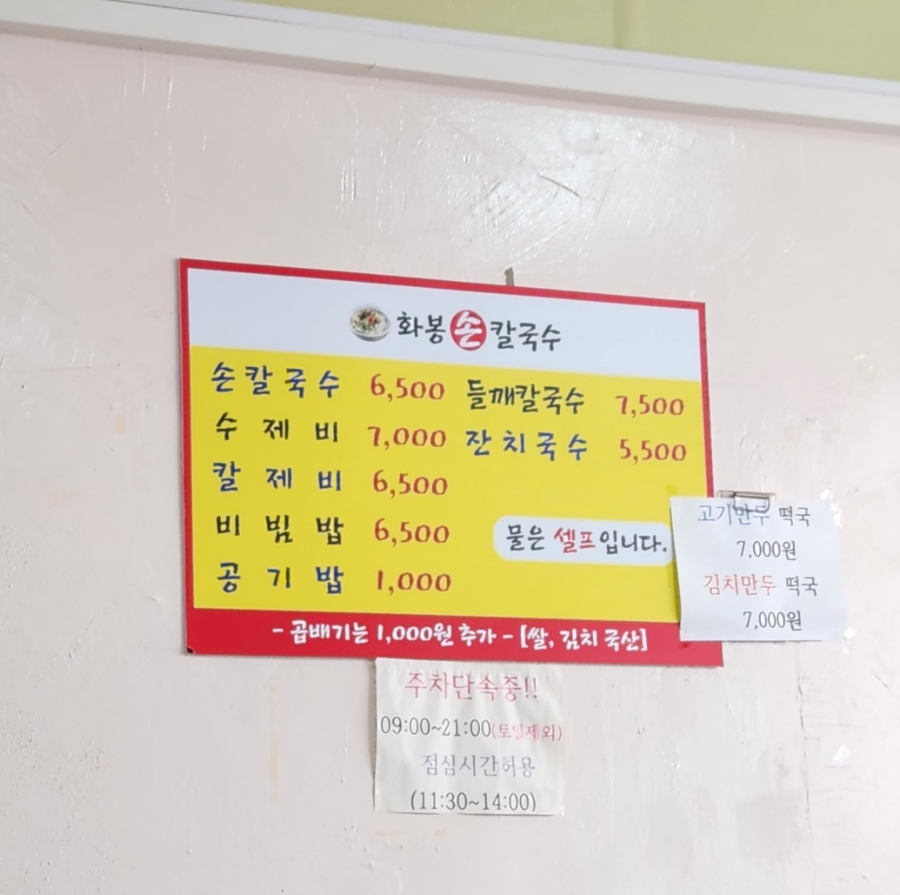 화봉손칼국수
손칼국수 6,500 들깨칼국수 7,500
수제비 7,000 잔치국수 5,500
칼제비 6,500
비빔밥 6,500
공기밥 1,000
물은 셀프입니다.
- 곱배기는 1,000원 추가 - [쌀, 김치 국산]
고기만두 떡국
7,000원
김치만두 떡국
7,000원
주차단속중!!
09:00~21:00(토일제외)
점심시간허용
(11:30~14:00)